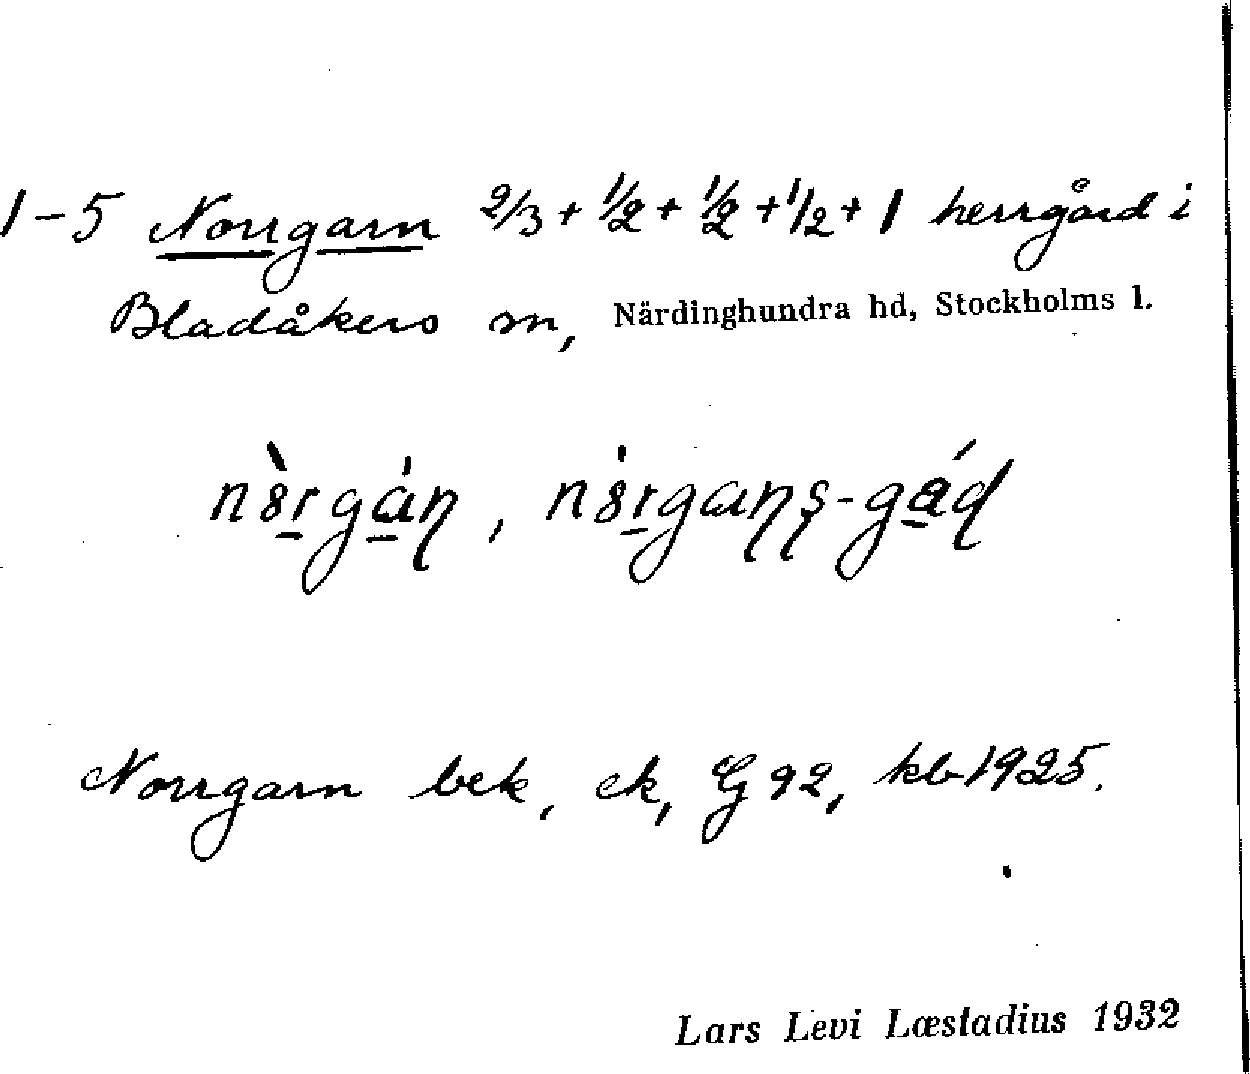 1-5 Norrgarn 2/3 + 1/2 + 1/2 + 1/2 + 1 herrgård i
Bladåkers sn, Närdinghundra hd, Stockholms l.
Norrgarn bek, ek, G 92, kb 1925.
Lars Levi Læstadius 1932